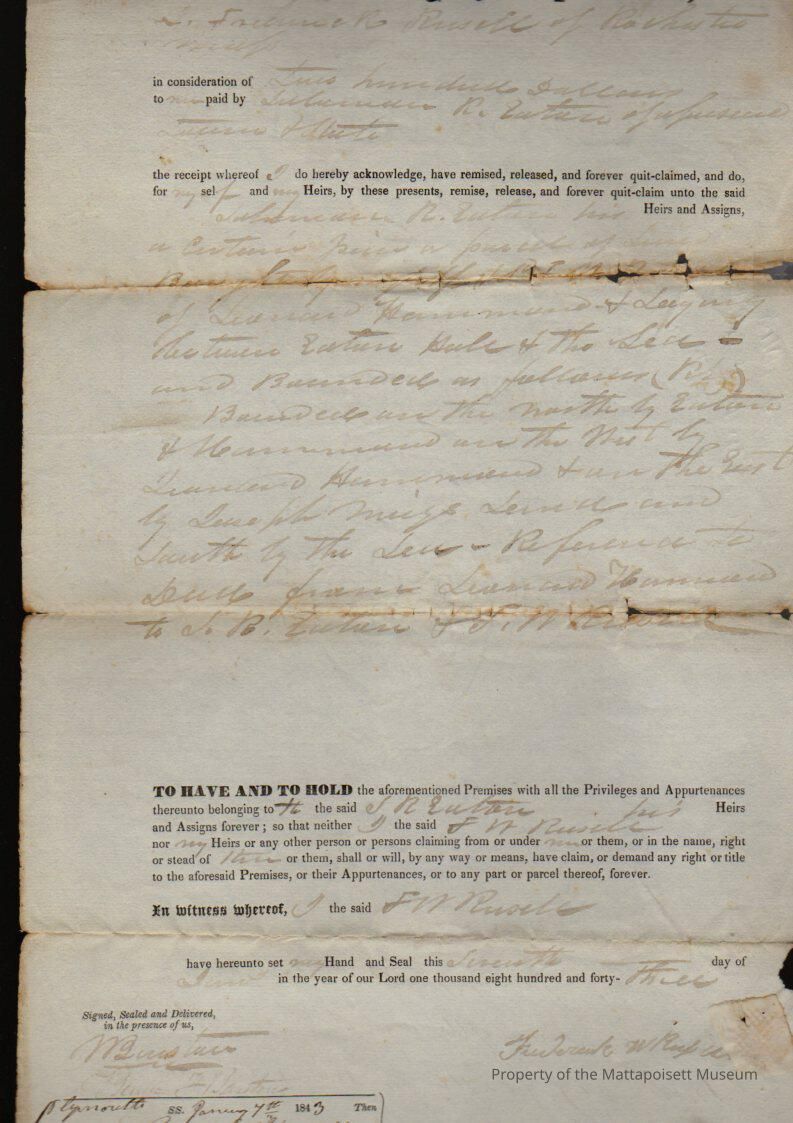 I. Frederick Russell of Rochester
Mass
in consideration of Two hundred Dollars
to me paid by Solomon R. Eaton of aforesaid
Town & State
the receipt whereof I do hereby acknowledge, have remised, released, and forever quit-claimed, and do,
for my self and my Heirs, by these presents, remise, release, and forever quit-claim unto the said
Solomon R. Eaton his Heirs and Assigns,
a Certain piece or parcel of Land
Bought
of Leonard Hammond & Laying
between Eaton Hall & the Sea =
and Bounded as follows
Bounded on the north by Eaton
& Hammond on the West by
Leonard Hammond & on the East
by Joseph Meigs Land and
South by the Sea - Reference to
Deed from Leonard Hammond
to S. R. Eaton & F. W Russell
TO HAVE AND TO HOLD the aforementioned Premises with all the Privileges and Appurtenances
thereunto belonging to the said S R Eaton his Heirs
and Assigns forever ; so that neither I the said F W Russell
nor my Heirs or any other person or persons claiming from or under me or them, or in the name, right
or stead of or them, shall or will, by any way or means, have claim, or demand any right or title
to the aforesaid Premises, or their Appurtenances, or to any part or parcel thereof, forever.
In witness whereof, I the said F W Russell
have hereunto set my Hand and Seal this Seventh day of
in the year of our Lord one thousand eight hundred and forty- three
Signed, Sealed and Delivered,
in the presence of us,
Frederick W Russell
Property of the Mattapoisett Museum
Plymouth SS. 7th 1843 Then